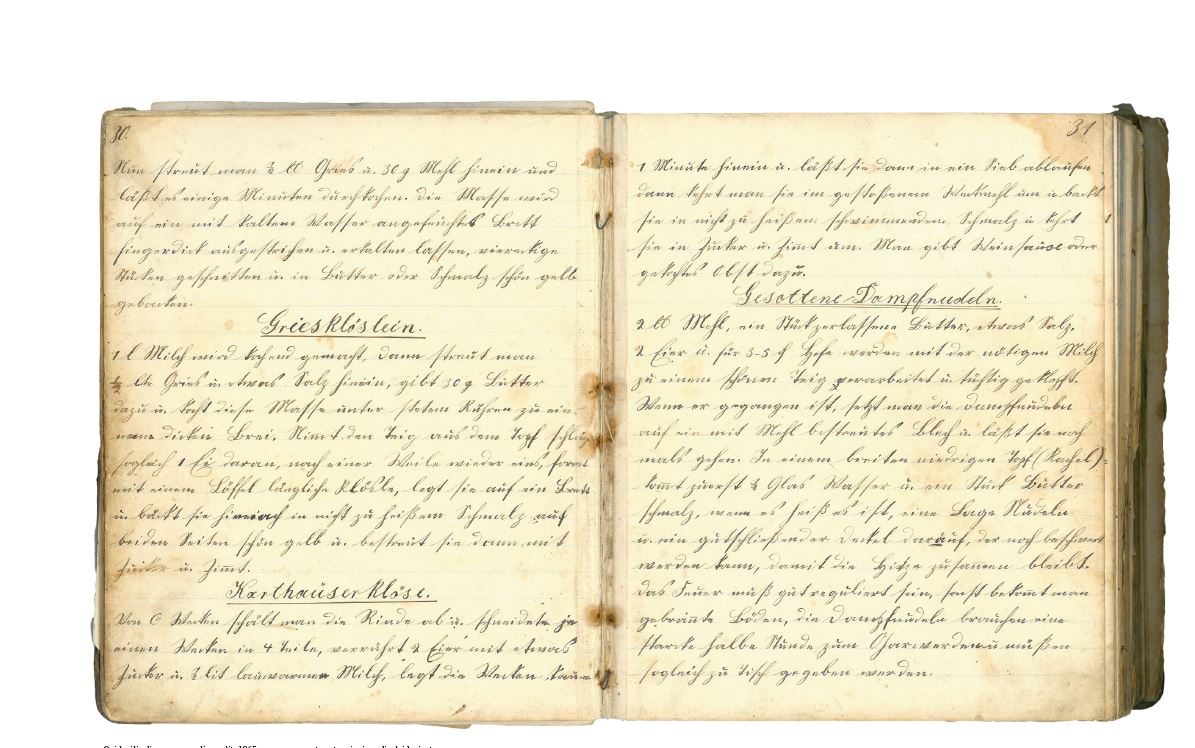 30.
Nun streut man ½ ℔ Gries u. 30 g Mehl hinein und
läßt es einige Minuten durchkochen. Die Masse wird
auf ein mit kaltem Wasser angefeuchtes Brett
fingerdick ausgestrichen u. erkalten lassen, viereckige
Stücken geschnitten u. in Butter oder Schmalz schön gelb
gebacken.
Griesklöslein.
1 l Milch wird kochend gemacht, dann streut man
Gries u. etwas Salz hinein, gibt 30 g Butter
dazu u. kocht diese Masse unter stetem Rühren zu ein-
dicken Brei. Nimt den Teig aus dem Topf schlag
sogleich 1 Ei daran, nach einer Weile wieder eins, formt
mit einem Löffel längliche Klösle, legt sie auf ein Brett
u. bäckt sie hinein in nicht zu heißem Schmalz auf
beiden Seiten schön gelb u. bestreut sie dann mit
Zucker u. Zimmt.
Karthäuserklöse.
Von 6 Wecken schält man die Rinde ab u. schneidete je
einen Wecken in 4 Teile, verrührt 2 Eier mit etwas
Zucker u. ½ lit lauwarmen Milch, legt die Wecken kaum
31
1 Minute hinein u. läßt sie dann in ein Sieb ablaufen
dann kehrt man sie im gestoßenem Weckmehl um u. backt
sie in nicht zu heißem schwimmendem Schmalz u. kehrt
sie in Zucker u. Zimt um. Man gibt Weinsauce oder
gekochtes Obst dazu.
Gesottene Dampfnudeln.
2 ℔ Mehl, ein Stück zerlassene Butter, etwas Salz,
2 Eier u. für 3-5 ₰ Hefe werden mit der nötigen Milch
zu einem schönen Teig verarbeitet u. tüchtig geklopft.
Wenn er gegangen ist, setzt man die Dampfnudeln
auf ein mit Mehl bestreutes Blech u. läßt sie noch
mals gehen. In einem breiten niedrigen Topf (Kachel)
kommt zuerst ½ Glas Wasser u. ein Stück Butter
schmalz, wenn es heiß es ist, eine Lage Nudeln
u. ein gutschließender Deckel darauf, der noch beschwert
werden kann, damit die Hitze zusamen bleibt.
Das Feuer muß gut reguliert sein, sonst bekomt man
gebrannte Böden, die Dampfnudeln brauchen eine
starke halbe Stunde zum Gharwerden u. müßen
sogleich zu Tisch gegeben werden.